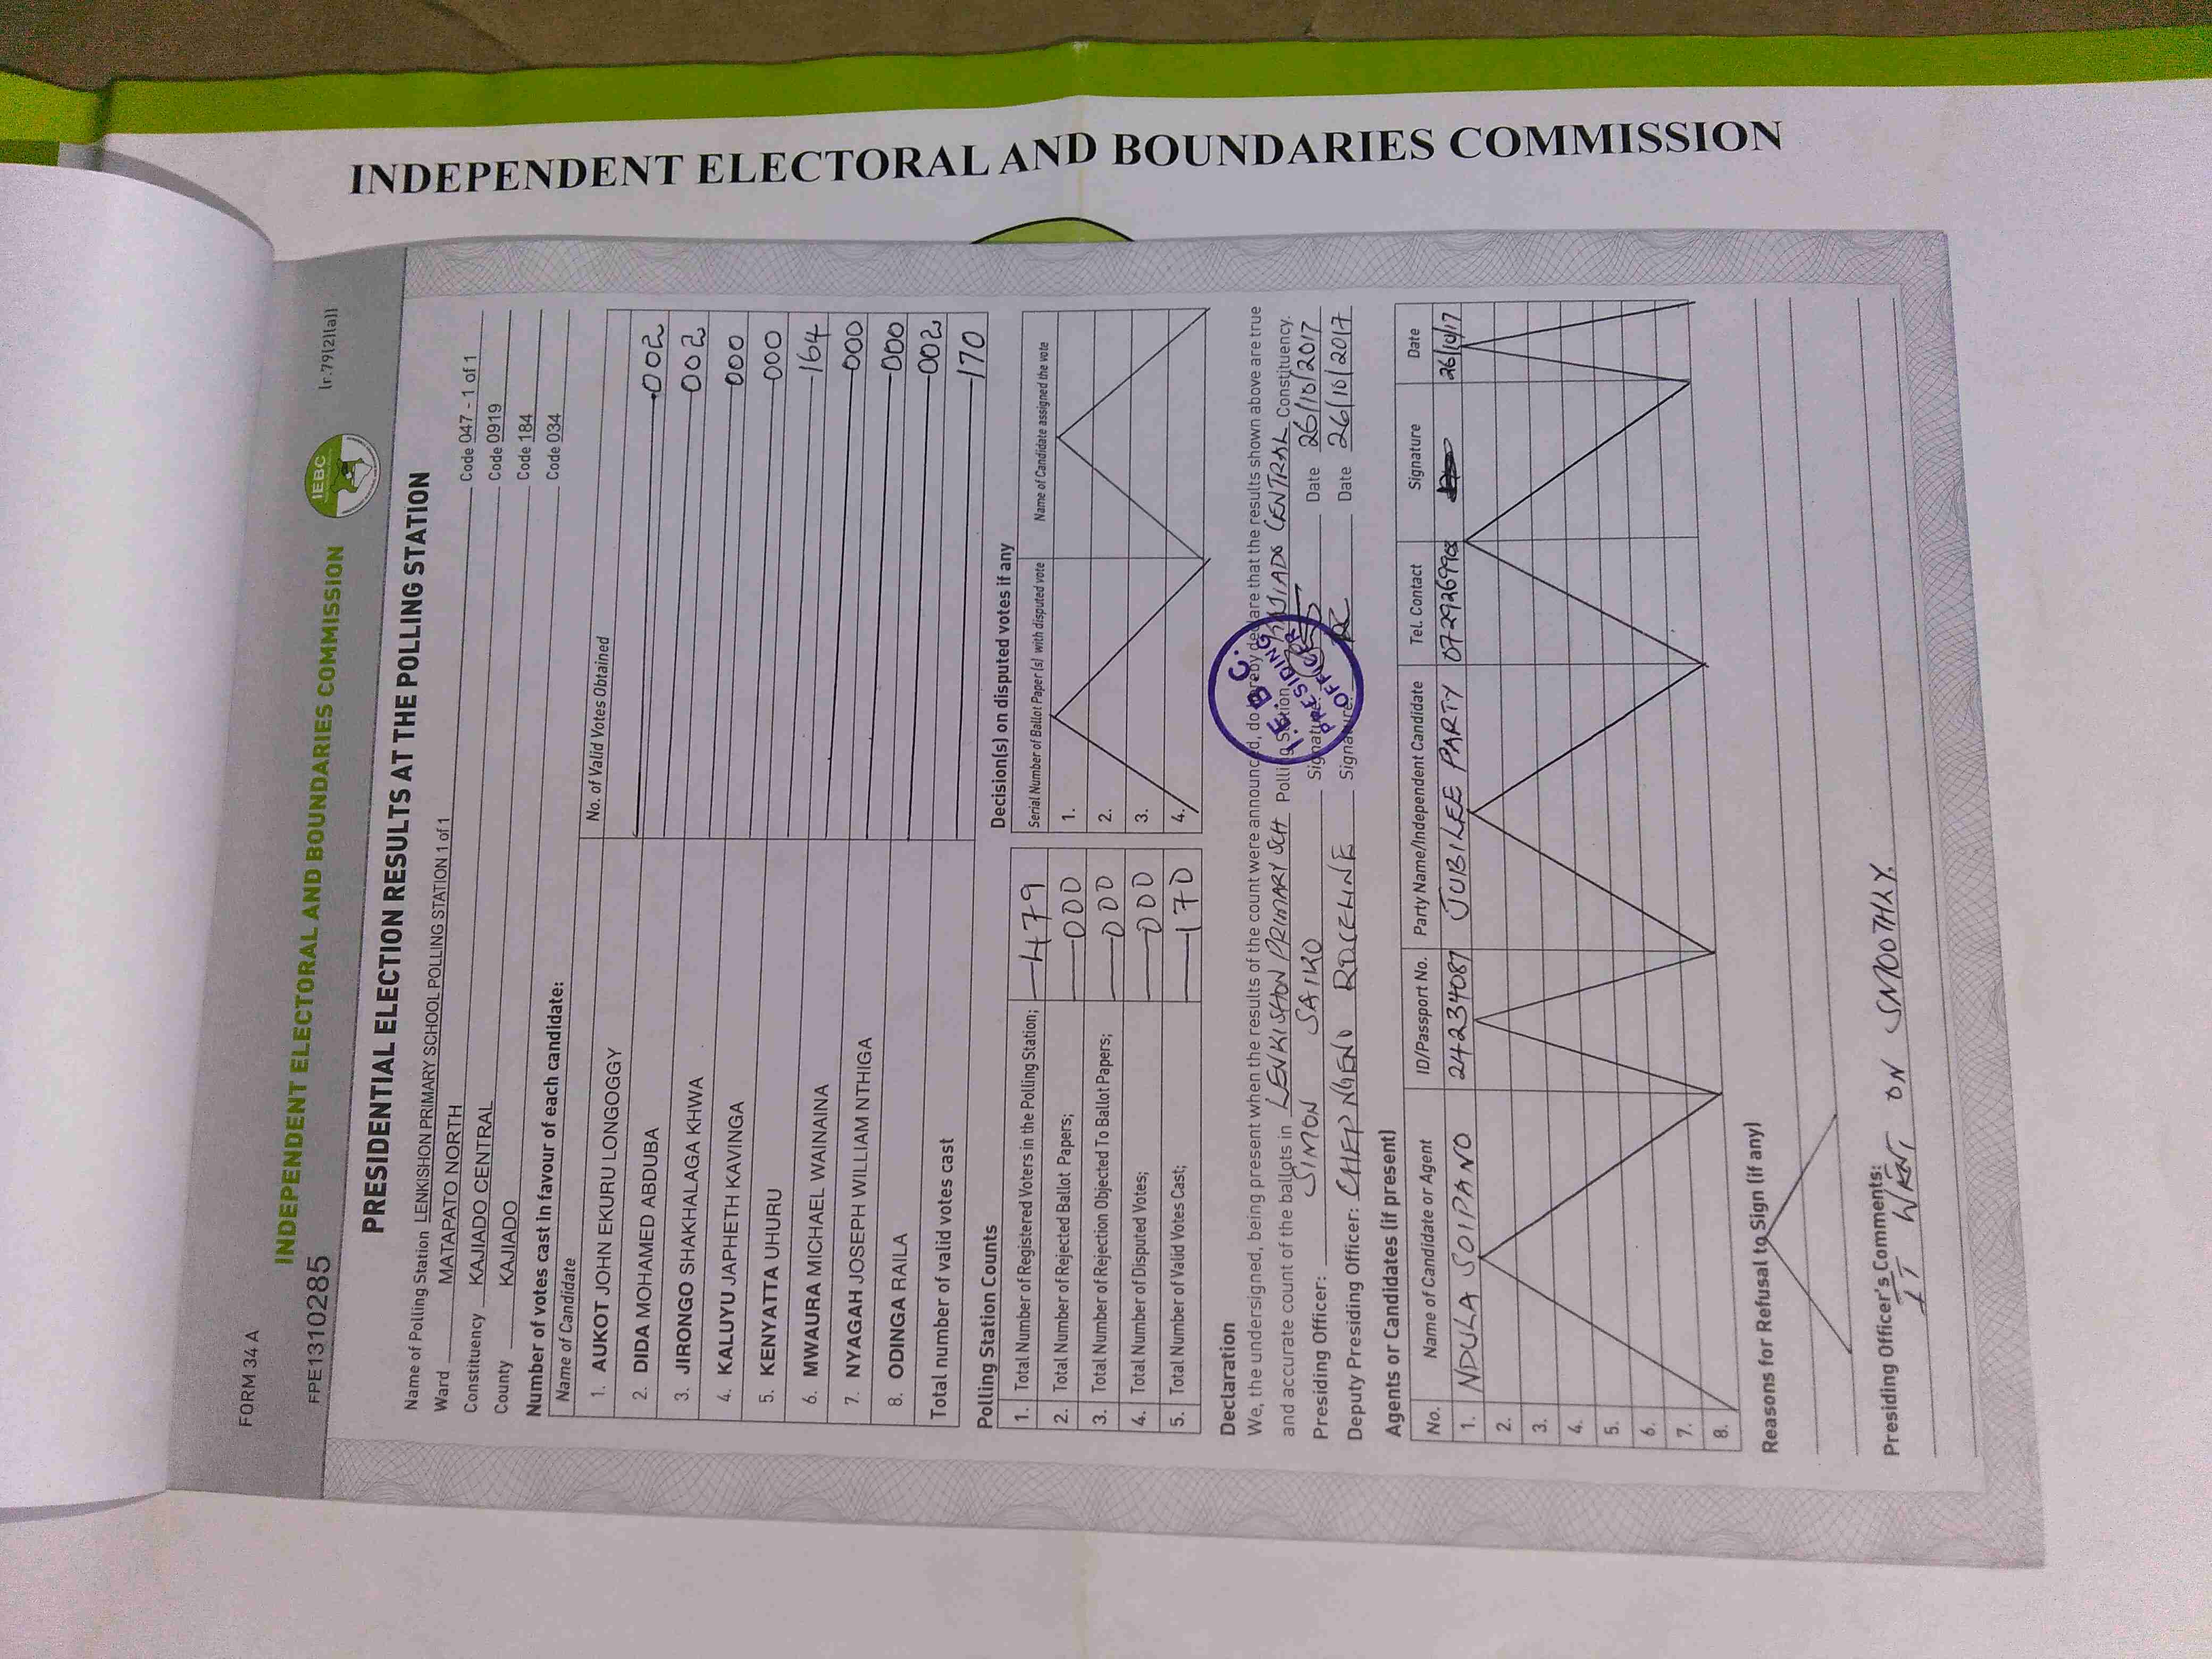 INDEPENDENT ELECTORAL AND BOUNDARIES COMMISSION
FORM 34 A
INDEPENDENT ELECTORAL AND BOUNDARIES COMMISSION
IEBC
(r.79(2)(a))
FPE1310285
PRESIDENTIAL ELECTION RESULTS AT THE POLLING STATION
Name of Polling Station LENKISHON PRIMARY SCHOOL POLLING STATION 1 of 1 Code 047 - 1 of 1
Ward MATAPATO NORTH Code 0919
Constituency KAJIADO CENTRAL Code 184
County KAJIADO Code 034
Number of votes cast in favour of each candidate:
Name of Candidate No. of Valid Votes Obtained
1. AUKOT JOHN EKURU LONGOGGY 002
2. DIDA MOHAMED ABDUBA 002
3. JIRONGO SHAKHALAGA KHWA 000
4. KALUYU JAPHETH KAVINGA 000
5. KENYATTA UHURU 164
6. MWAURA MICHAEL WAINAINA 000
7. NYAGAH JOSEPH WILLIAM NTHIGA 000
8. ODINGA RAILA 002
Total number of valid votes cast 170
Polling Station Counts
1. Total Number of Registered Voters in the Polling Station; 479
2. Total Number of Rejected Ballot Papers; 000
3. Total Number of Rejection Objected To Ballot Papers; 000
4. Total Number of Disputed Votes; 000
5. Total Number of Valid Votes Cast; 170
Decision(s) on disputed votes if any
Serial Number of Ballot Paper (s) with disputed vote Name of Candidate assigned the vote
1.
2.
3.
4.
Declaration
We, the undersigned, being present when the results of the count were announced, do hereby declare that the results shown above are true
and accurate count of the ballots in LENKISHON PRIMARY SCH Polling Station, KAJIADO CENTRAL Constituency.
Presiding Officer: SIMON SAIKO Signature: Date 26/10/2017
Deputy Presiding Officer: CHEPNGENO ROCELINE Signature: Date 26/10/2017
I.E.B.C.
PRESIDING
OFFICER
Agents or Candidates (if present)
No. Name of Candidate or Agent ID/Passport No. Party Name/Independent Candidate Tel. Contact Signature Date
1. NDULA SOIPANO 24234087 JUBILEE PARTY 26/10/17
2.
3.
4.
5.
6.
7.
8.
Reasons for Refusal to Sign (if any)
Presiding Officer's Comments:
IT WENT ON SMOOTHLY.